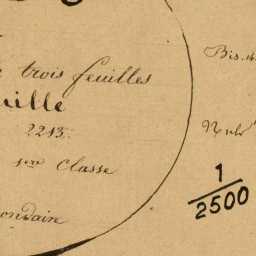 trois feuilles
uille
2213.
1ère Classe
ondaire
Bis.
1/2500